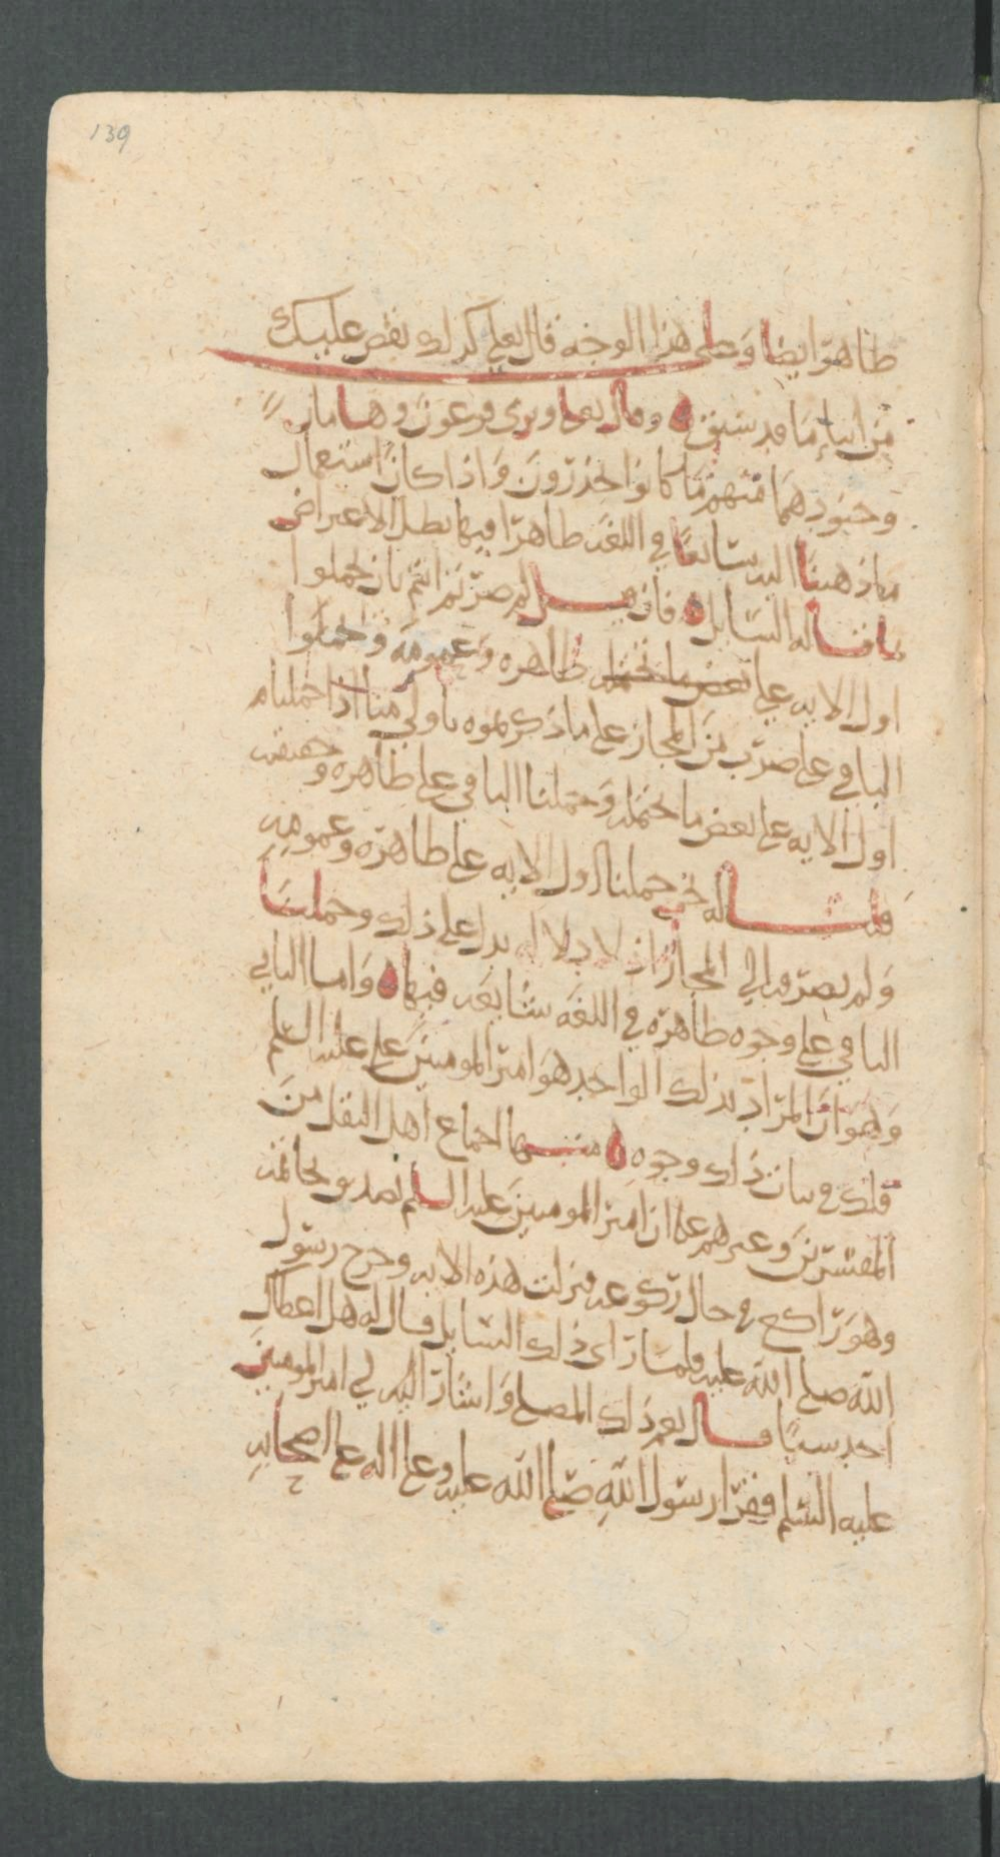 139
ظاهر ايضا وعلى هذا الوجه قال تعلى كذلك نقص عليك
من انباء ما قد سبق وقال تعلى ونرى فرعون وهامان
وجنودهما منهم ما كانوا يحذرون واذا كان استعمال
ما ذهبنا اليه سائغا في اللغه ظاهرا فيها بطل الاعتراض
ما قاله السايل فان قيل لم صرتم انتم بان تحملوا
اول الايه على ظاهره وعمومه وتحملوا
الباقي على ضرب من المجاز على ما ذكرتموه باولى منا اذا حملنا
اول الايه على بعض ما تحتمله وحملنا الباقي على ظاهره وحقيقته
قلنا له نحن حملنا اول الايه على ظاهره وعمومه
ولم نصرفه الى المجاز اذ لا يدل على ذلك وحملنا
الباقي على وجوه ظاهره في اللغه سايغه فيها واما الثاني
وهو ان المراد بذلك الواحد هو امير المومنين علي عليه السلم
فلنا في بيان ذلك وجوه منها اجماع اهل النقل من
المفسرين وغيرهم على ان امير المومنين عليه السلم تصدق بخاتمه
وهو راكع في حال ركوعه فنزلت هذه الايه وخرج رسول
الله صلى الله عليه فلما راى ذلك السايل قال له هل اعطاك
احد شيا فقال نعم ذلك المصلي واشار اليه الي امير المومنين
عليه السلم فقرا رسول الله صلى الله عليه وعلى اله على اصحابه